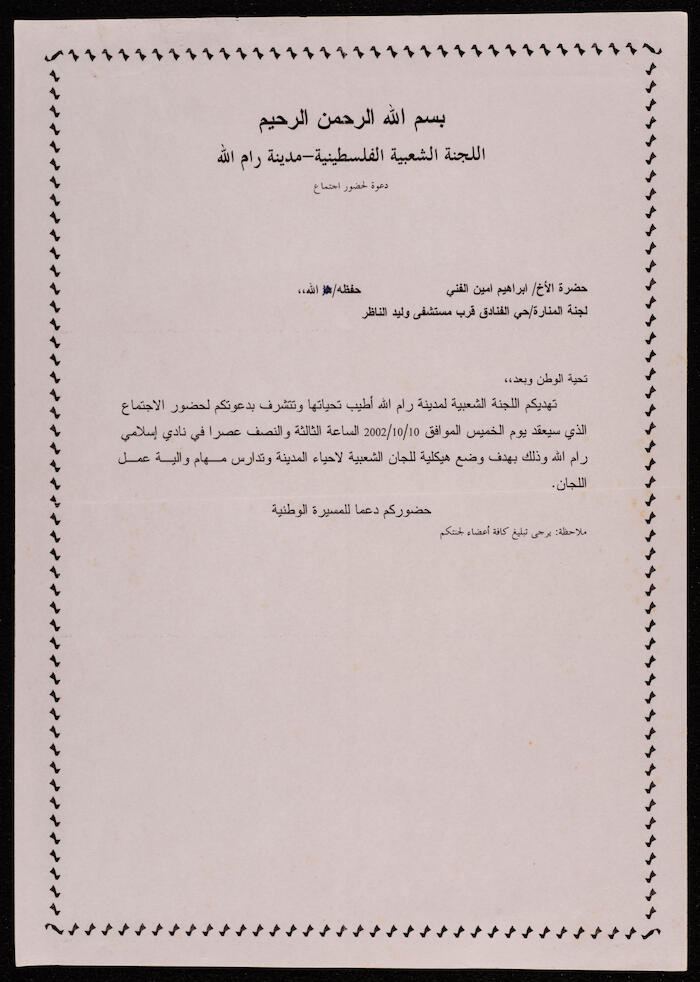 بسم الله الرحمن الرحيم
اللجنة الشعبية الفلسطينية–مدينة رام الله
دعوة لحضور اجتماع
حضرة الأخ/ ابراهيم امين الفني حفظه/ الله،،
لجنة المنارة/حي الفنادق قرب مستشفى وليد الناظر
تحية الوطن وبعد،،
تهديكم اللجنة الشعبية لمدينة رام الله أطيب تحياتها وتتشرف بدعوتكم لحضور الاجتماع
الذي سيعقد يوم الخميس الموافق 2002/10/10 الساعة الثالثة والنصف عصرا في نادي إسلامي
رام الله وذلك بهدف وضع هيكلية للجان الشعبية لاحياء المدينة وتدارس مهام والية عمل
اللجان.
حضوركم دعما للمسيرة الوطنية
ملاحظة: يرجى تبليغ كافة أعضاء لجنتكم